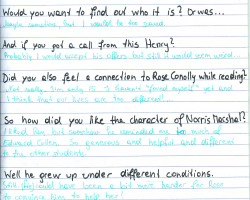 Would you want to find out who it is? Or was...
Maybe sometime, but I want to be the same
And if you got a call from this Henry?
Probably I would accept his offers but still I would been weird...
Did you also feel a connection to Rose Conolly while reading?
Not really. I'm only 15. I haven't "found myself" yet and
I think that our lives are too different...
So how did you like the character of Norris Marshal?
I liked him but somehow he reminded me too much of
Edward Cullen. So generous and helpful and different
to the other students
Well he grew up under different conditions.
Still (He) would have been a bit more harder for Rose
to convince him to help her!